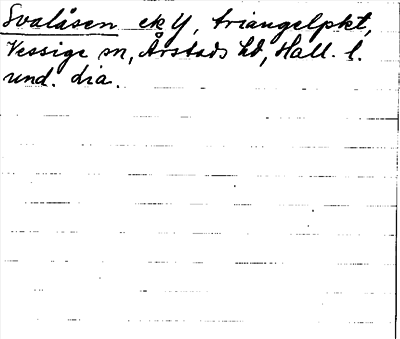 Svalåsen ek Y, triangelpkt,
Vessige sn, Årstads hd, Hall. l.
und. dia.